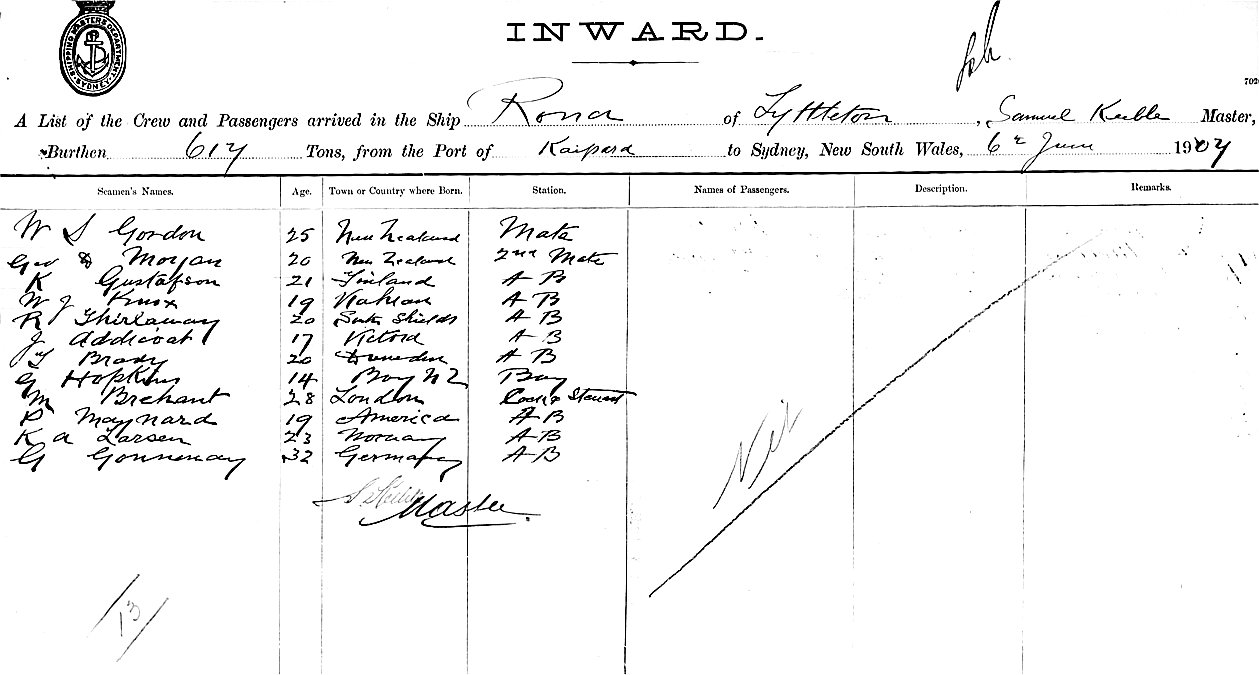 SHIPPING MASTERS DEPARTMENT SYDNEY
INWARD.
702
A List of the Crew and Passengers arrived in the Ship Rona of Lyttleton, Samuel Keeble Master,
Burthen 617 Tons, from the Port of Kaipara to Sydney, New South Wales, 6th June 1907
Seamen's Names. Age. Town or Country where Born. Station. Names of Passengers. Description. Remarks.
W S Gordon 25 New Zealand Mate
Geo Morgan 20 New Zealand 2nd Mate
K Gustafson 21 Finland A B
W J Knox 19 A B
R Thirlaway 20 South Shields A B
J Addicoat 17 Victoria A B
Brady 20 Dunedin A B
G Hopkins 14 NZ Boy
M Brehant 28 London Cook & Steward
P Maynard 19 America A B
K A Larsen 23 Norway A B
G 32 Germany A B
Nil
S Keeble
Master
13